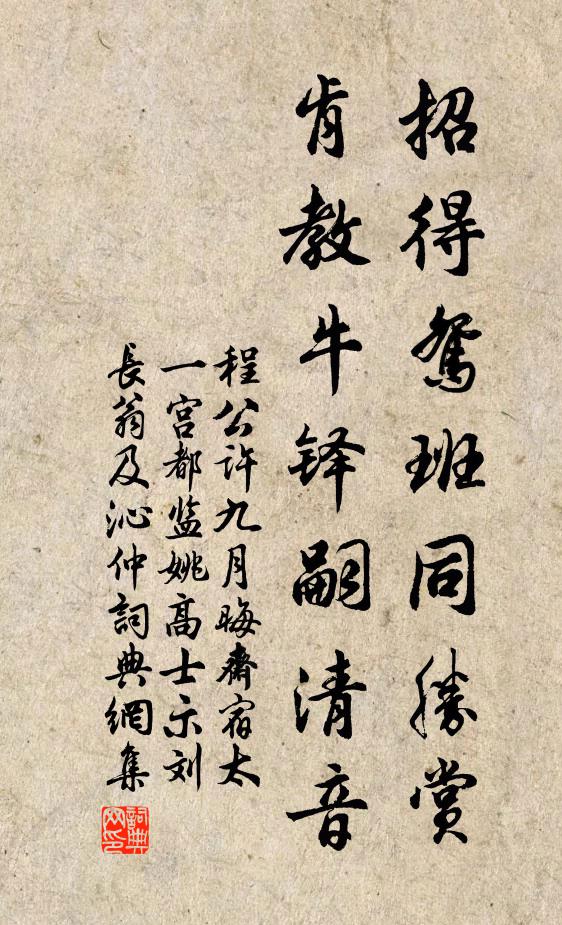 招得鸳班同勝赏
肯教牛铎嗣清音
程公许九月晦齋宿太
一宫都监姚高士示刘
長翁及沁仲詞典網集
詞典网印